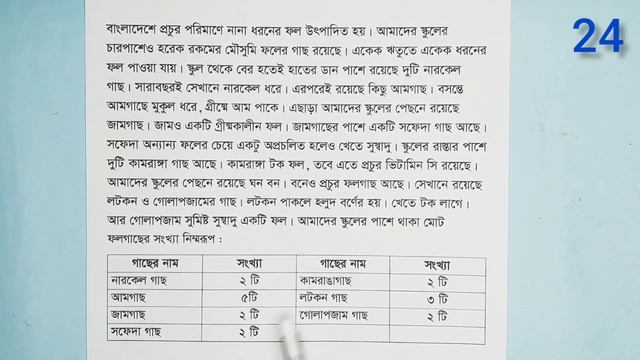 24
বাংলাদেশে প্রচুর পরিমাণে নানা ধরনের ফল উৎপাদিত হয়। আমাদের স্কুলের
চারপাশেও হরেক রকমের মৌসুমি ফলের গাছ রয়েছে। একেক ঋতুতে একেক ধরনের
ফল পাওয়া যায়। স্কুল থেকে বের হতেই হাতের ডান পাশে রয়েছে দুটি নারকেল
গাছ। সারাবছরই সেখানে নারকেল ধরে। এরপরেই রয়েছে কিছু আমগাছ। বসন্তে
আমগাছে মুকুল ধরে, গ্রীষ্মে আম পাকে। এছাড়া আমাদের স্কুলের পেছনে রয়েছে
জামগাছ। জামও একটি গ্রীষ্মকালীন ফল। জামগাছের পাশে একটি সফেদা গাছ আছে।
সফেদা অন্যান্য ফলের চেয়ে একটু অপ্রচলিত হলেও খেতে সুস্বাদু। স্কুলের রাস্তার পাশে
দুটি কামরাঙ্গা গাছ আছে। কামরাঙ্গা টক ফল, তবে এতে প্রচুর ভিটামিন সি রয়েছে।
আমাদের স্কুলের পেছনে রয়েছে ঘন বন। বনেও প্রচুর ফলগাছ আছে। সেখানে রয়েছে
লটকন ও গোলাপজামের গাছ। লটকন পাকলে হলুদ বর্ণের হয়। খেতে টক লাগে।
আর গোলাপজাম সুমিষ্ট সুস্বাদু একটি ফল। আমাদের স্কুলের পাশে থাকা মোট
ফলগাছের সংখ্যা নিম্নরূপ :
গাছের নাম সংখ্যা গাছের নাম সংখ্যা
নারকেল গাছ ২ টি কামরাঙাগাছ ২ টি
আমগাছ ৫টি লটকন গাছ ৩ টি
জামগাছ ২ টি গোলাপজাম গাছ ২ টি
সফেদা গাছ ২ টি